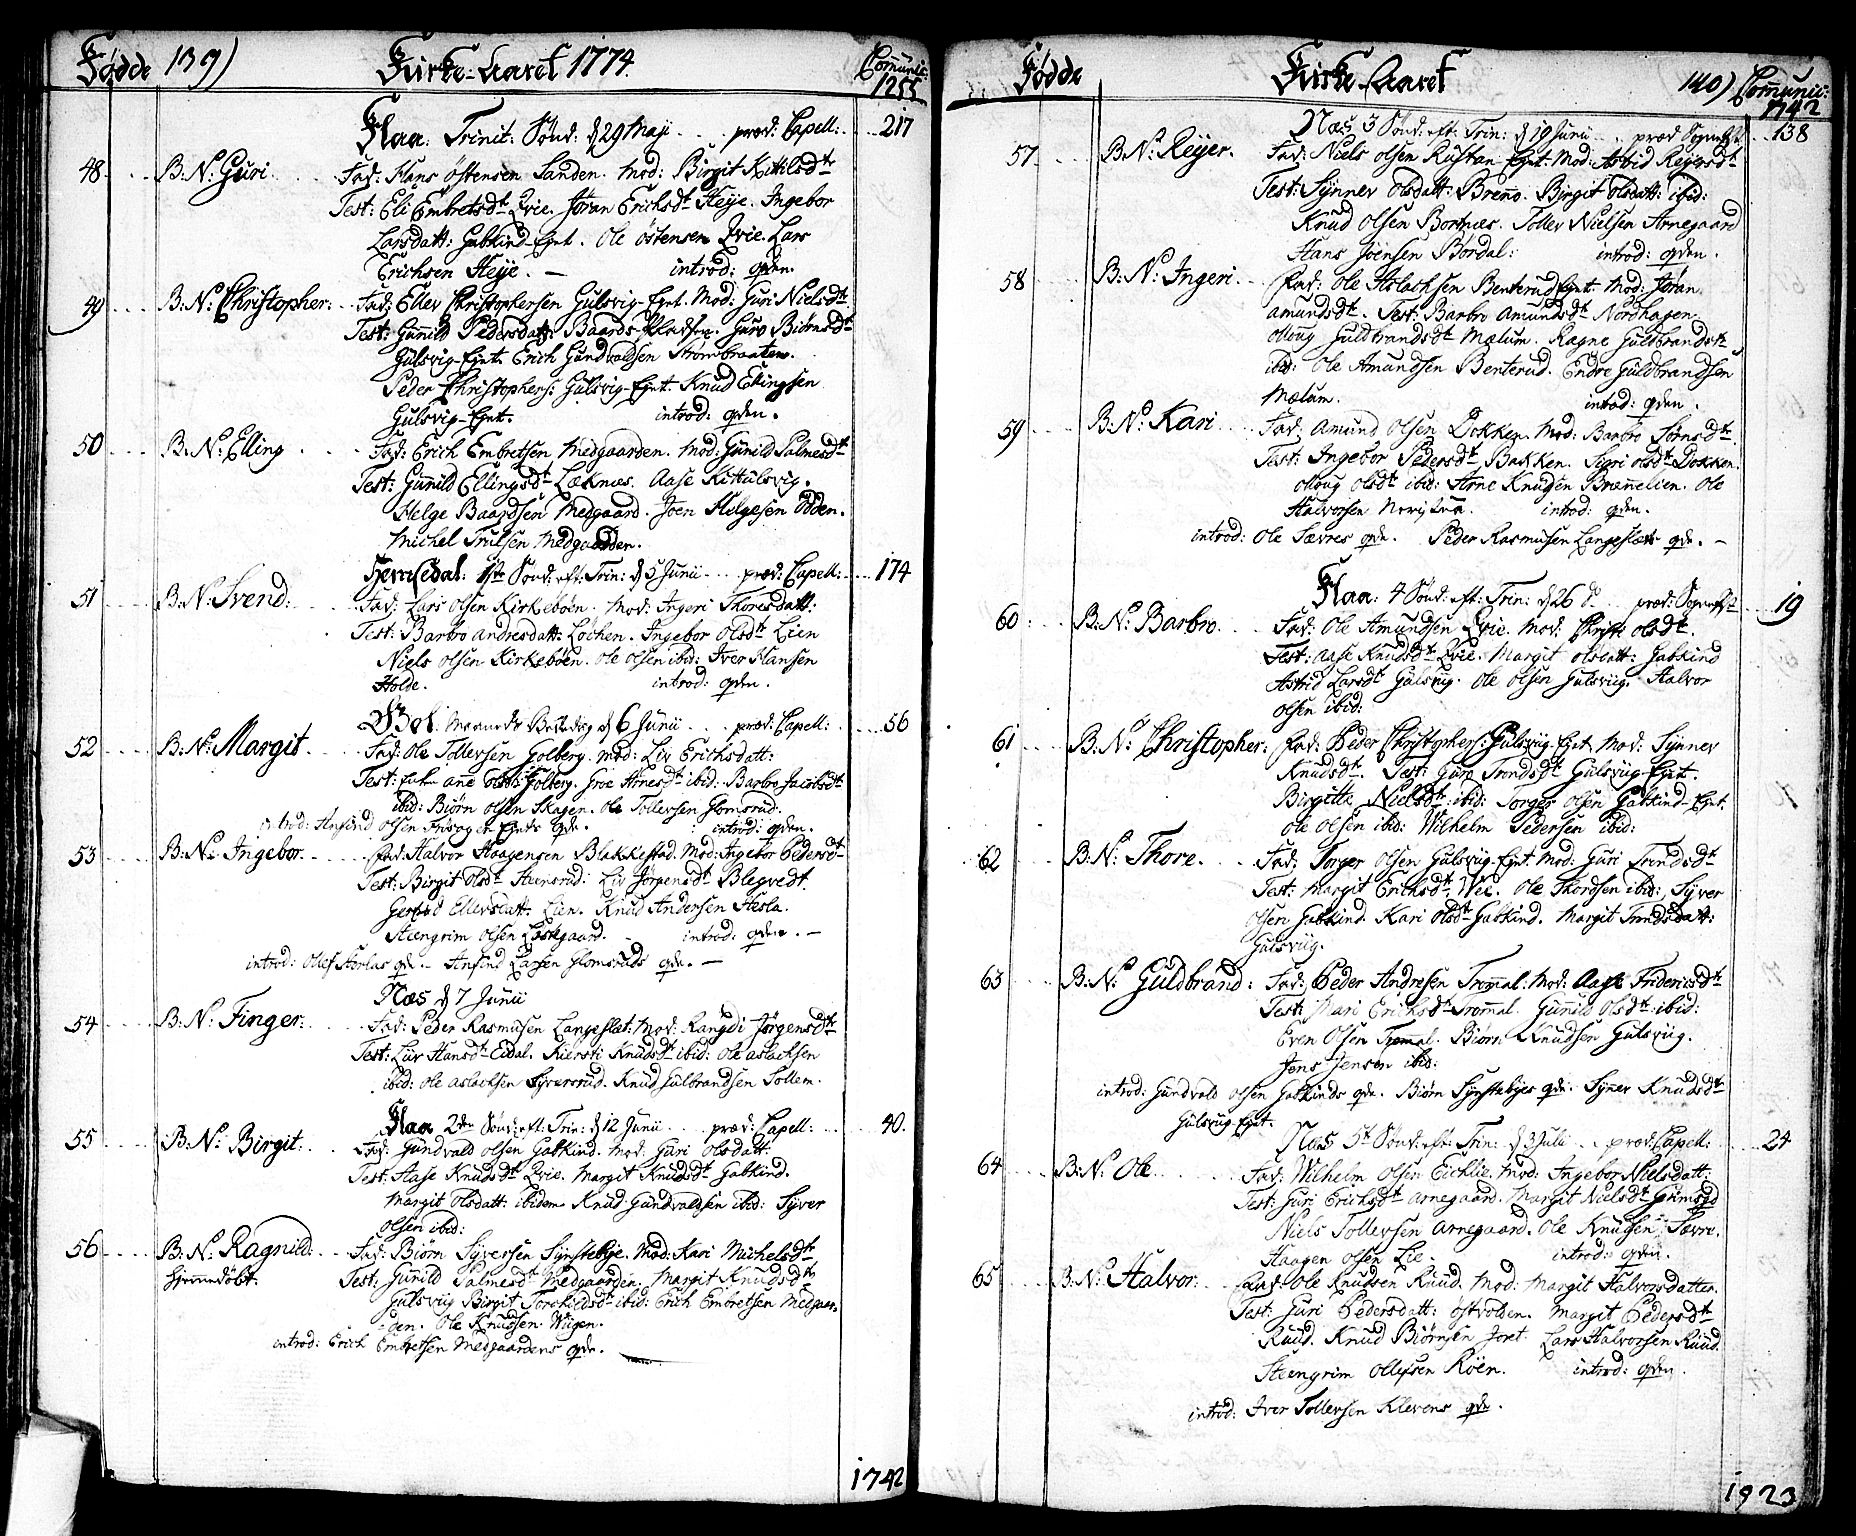 Fødde 139) Kirke-Aaret 1774. Comunic: 1255
Flaa: Trinit: Sønd: d 29 Maji .... præd: Capell: ... 217
48 .... B: N: Guri ..... Fad: Hans Østensen Sanden. Mod: Birgit Kittilsdtr
Test: Eli Embretsdt Qvie. Jøran Erichsdt Heye. Ingebor
Larsdatt: Gabkind-Eynt. Ole Østensen Qvie. Lars
Erichsen Heye. — introd: qvden.
49 .... B: N: Christopher: .. Fad: Ellev Christophersen Gulsvig-Eynt. Mod: Guri Nielsdt
Test: Gunild Pedersdatt: Baards Guro Biørnsdt
Gulsvig-Eynt. Erich Gundvaldsen Strømbraaten.
Peder Christophers: Gulsvig-Eynt. Knud Ellingsen
Gulsvig-Eynt. introd: qvden.
50 .... B: N: Elling .... Fad: Erich Embretsen Medgaarden. Mod: Gunild Palmesdt
Test: Gunild Ellingsdt Læknæs. Aase K: Gulsvig.
Helge Baardsen Medgaard. Joen Helgesen Odden.
Michel Trulsen Medgaarden.
Hemsedal: 1ste Sønd: eft: Trin: d 5 Junii .... præd: Capell: .... 174
51 .... B: N: Svend: .... Fad: Lars Olsen Kirkebøen. Mod: Ingeri Thoresdatt:
Test: Barbro Andresdatt: Løchen. Ingebor Olsdt Lien
Niels Olsen Kirkebøen. Ole Olsen ibid: Iver Hansen
Holde. introd: qvden.
Gol. Maaneds Bededag d 6 Junii .... præd: Capell: .. 56
52 .... B: N: Margit .... Fad: Ole Tollevsen Golberg. Mod: Liv Erichsdatt:
Test: Ane Golberg. Groe Arnesdt ibid: Barbro Jacobsdt
ibid: Biørn Olsen Skagen. Ole Tollevsen Glomsrud.
introd: Anfind Olsen Eynts qvde. introd: qvden.
53 .... B: N: Ingebor. .... Fad: Halvor Haagensen Blakkestad. Mod: Ingebor Pedersdt
Test: Birgit Olsdt Huusrud: Liv Jørgensdt Blegvedt.
Ellevsdatt: Lien. Knud Andersen Hesla.
Steengrim Olsen Løstegaard. introd: qvden. —
introd: Olef Herlas qvde. – Anfind Larsen Glomsruds qvde. —
Næs d 7 Junii
54 .... B: N: Finger: .... Fad: Peder Rasmusen Langeslet: Mod: Rangdi Jørgensdt
Test: Liv Hansdt Eidal. Kiersti Knudsdt ibid: Ole Aslachsen
ibid: Ole Aslachsen Syversrud. Knud Gulbrandsen Sollem.
Flaa 2den Sønd: eft: Trin: d 12 Junii .... præd: Capell: ... 40.
55 .... B: N: Birgit. ... Fad: Gundvald Olsen Gabkind. Mod: Guri Olsdatt:
Test: Aase Knudsdt Qvie. Margit Knudsdt Gabkind.
Margit Olsdatt: ibidem Knud Gundvaldsen ibid: Syver
Olsen ibid:
56 .... B: N: Ragnild: ... Fad: Biørn Syversen Synstebye. Mod: Kari Michelsdtr
hjemmedøbt. Test: Gunild Palmesdt Medgaarden. Margit Knudsdtr
Gulsvig Birgit Torchildsdt ibid: Erich Embretsen Medgaar-
den. Ole Knudsen Wiigen.
introd: Erich Embretsen Medgaardens qvde.
1742
Fødde Kirke-Aaret 140) Comunic: 1742
Næs 3 Sønd: eft: Trin: d 19 Junii .. præd Sognepr: .. 138
57 .... B: N: Reyer. .. Fad: Niels Olsen Rustan-Eynt. Mod: Astrid Reyersdt
Test: Synnev Olsdatt: Breno. Birgit Olsdatt: ibid:
Knud Olsen Bortnæs. Tollev Nielsen Arnegaard
Hans Joensen Børdal: introd: qvden.
58 .... B: N: Ingeri. .. Fad: Ole Aslachsen Benterud Eynt. Mod: Jøran
Amundsdt. Test: Barbro Amundsdt Nordhagen
Olloug Guldbrandsdt Mælum. Ragne Guldbrandsdt
ibid: Ole Amundsen Benterud. Endre Guldbrandsen
Mælum. introd: qvden.
59 .... B: N: Kari .... Fad: Amund Olsen Dokken. Mod: Barbro Sørnsdt
Test: Ingebor Pedersdt Bakken. Sigri Olsdt Dokken.
Olloug Olsdt ibid: Arne Knudsen Brænnelien. Ole
Halvorsen introd: qvden.
introd: Ole Sævres qvde. Peder Rasmusen Langeslæts qvde. –
Flaa: 4 Sønd: eft: Trin: d 26 d. .. præd: Sognepr: ... 19
60 : ... B: N: Barbro. .... Fad: Ole Amundsen Qvie. Mod: Christi Olsdt.
Test: Aase Knudsdt Qvie. Margit Olsdatt: Gabkind
Astrid Larsdt Gulsviig. Ole Olsen Gulsviig. Halvor
Olsen ibid:
61 .... B: N: Christopher: Fad: Peder Christophers: Gulsviig-Eynt. Mod: Synnev
Knudsdt. Test: Guro Trondsdt Gulsviig-Eynt.
Birgitte Nielsdt ibid: Torger Olsen Gabkind-Eynt.
Ole Olsen ibid: Wilhelm Pedersen ibid:
62 .... B: N: Thore. ... Fad: Torger Olsen Gulsviig-Eynt Mod: Guri Trondsdt
Test: Margit Erichsdt Wie. Ole Thordsen ibid: Syver
Olsen Gabkind. Kari Olsdt Gabkind. Margit Trondsdatt:
Gulsviig.
63 .... B: N: Guldbrand: Fad: Peder Andresen Trommal. Mod: Aase Friderichsdt
Test: Mari Erichsdt Trommal. Gunild Olsdt ibid:
Even Olsen Trommal. Biørn Knudsen Gulsviig.
Jens Jensen ibid:
introd: Gundvald Olsen Gabkinds qvde. Biørn Synstebyes qvde. Synev Knudsdt
Gulsvig-Eynt.
Næs 5t Sønd: eft: Trin: d 3 Julii ... præd: Capell: .... 24
64 .... B: N: Ole ...... Fad: Wilhelm Olsen Eichlie. Mod: Ingebor Nielsdatt:
Test: Guri Erichsdt Arnegaard. Margit Nielsdt Grimsgd
Niels Tollevsen Arnegaard. Ole Knudsen Sævre.
Haagen Olsen Lie. introd: qvden.
65 ... B: N: Halvor. .. Fad: Ole Knudsen Ruud. Mod: Margit Halvorsdatter
Test: Guri Pedersdatt: Østrolden. Margit Pedersdt
Ruud. Knud Biørnsen Joret. Lars Halvorsen Ruud.
Steengrim Ollefsen Røen. introd: qvden.
introd: Iver Tollevsen Klevens qvde.
1923